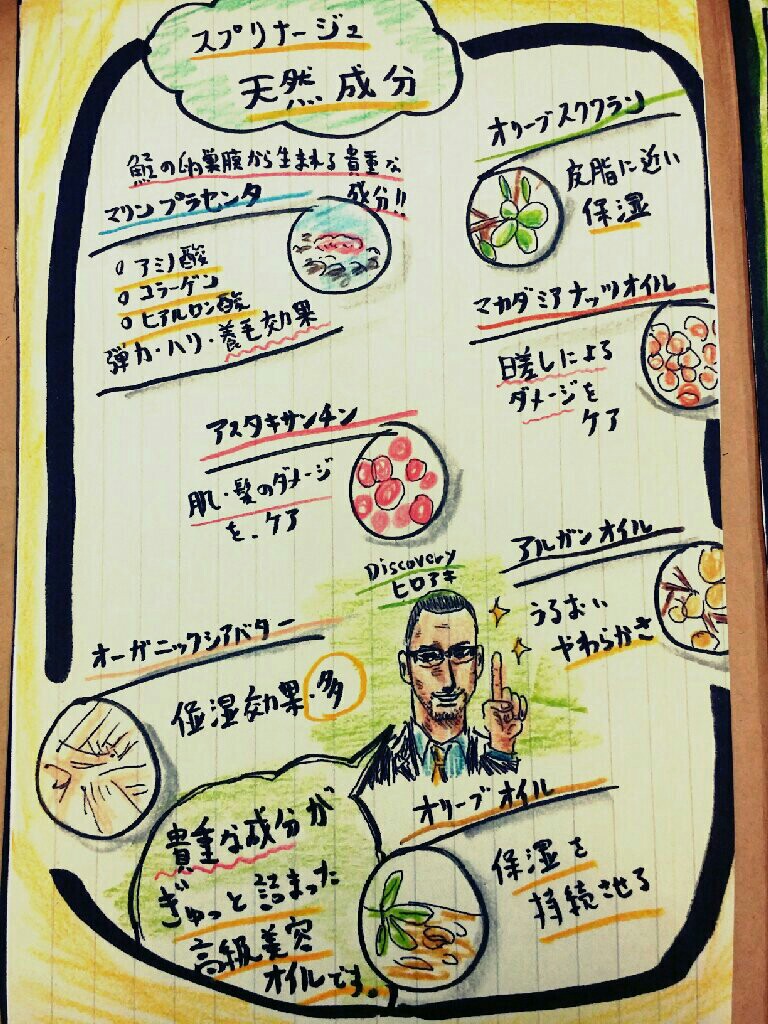 スプリナージュ
天然成分
鮭の卵巣膜から生まれる貴重な
成分!!
マリンプラセンタ
アミノ酸
コラーゲン
ヒアルロン酸
弾力・ハリ・養毛効果
オリーブスクワラン
皮脂に近い
保湿
マカダミアナッツオイル
日差しによる
ダメージを
ケア
アスタキサンチン
肌・髪のダメージ
を、ケア
Discovery
ヒロアキ
アルガンオイル
うるおい
やわらかさ
オーガニックシアバター
保湿効果・多
オリーブオイル
保湿を
持続させる
貴重な成分が
ぎゅっと詰まった
高級美容
オイルです。